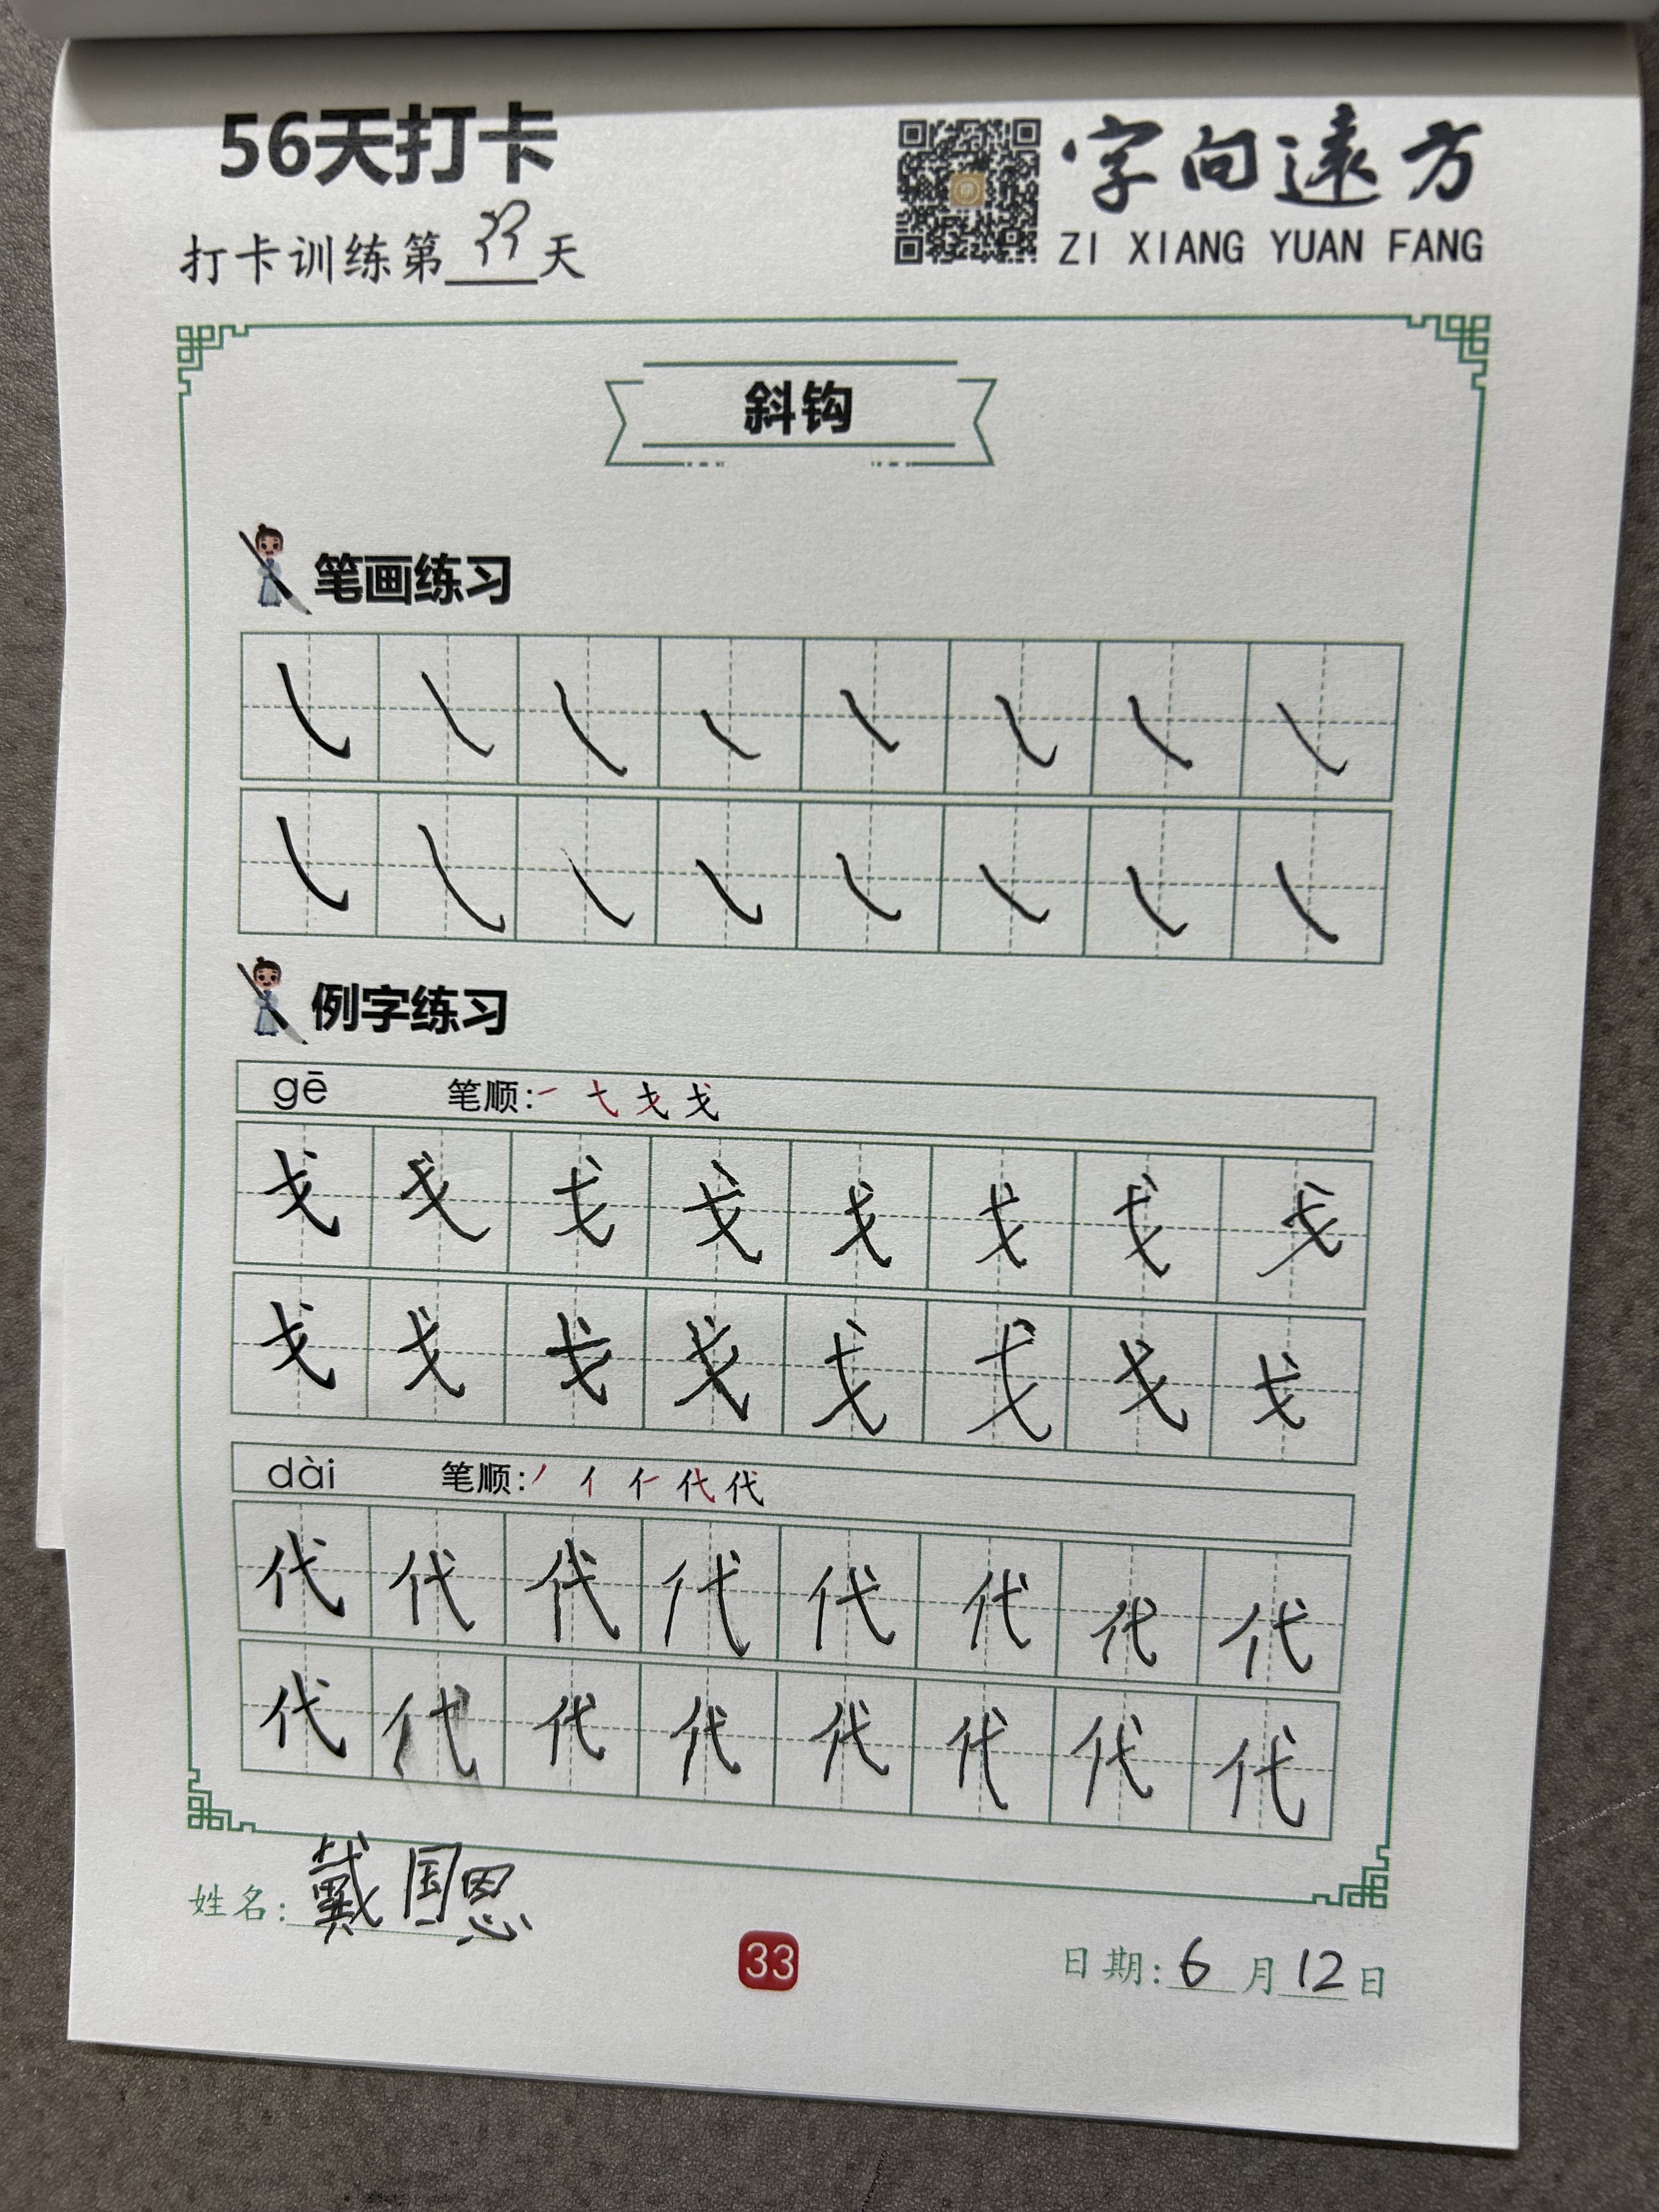 56天打卡
字向遠方
ZI XIANG YUAN FANG
打卡训练第33天
斜钩
笔画练习
例字练习
gē 笔顺:一 弋 戈 戈
戈 戈 戈 戈 戈 戈 戈 戈
戈 戈 戈 戈 戈 戈 戈 戈
dài 笔顺:丿 亻 仁 代 代
代 代 代 代 代 代 代 代
代 代 代 代 代 代 代 代
姓名:戴国恩
33
日期:6月12日